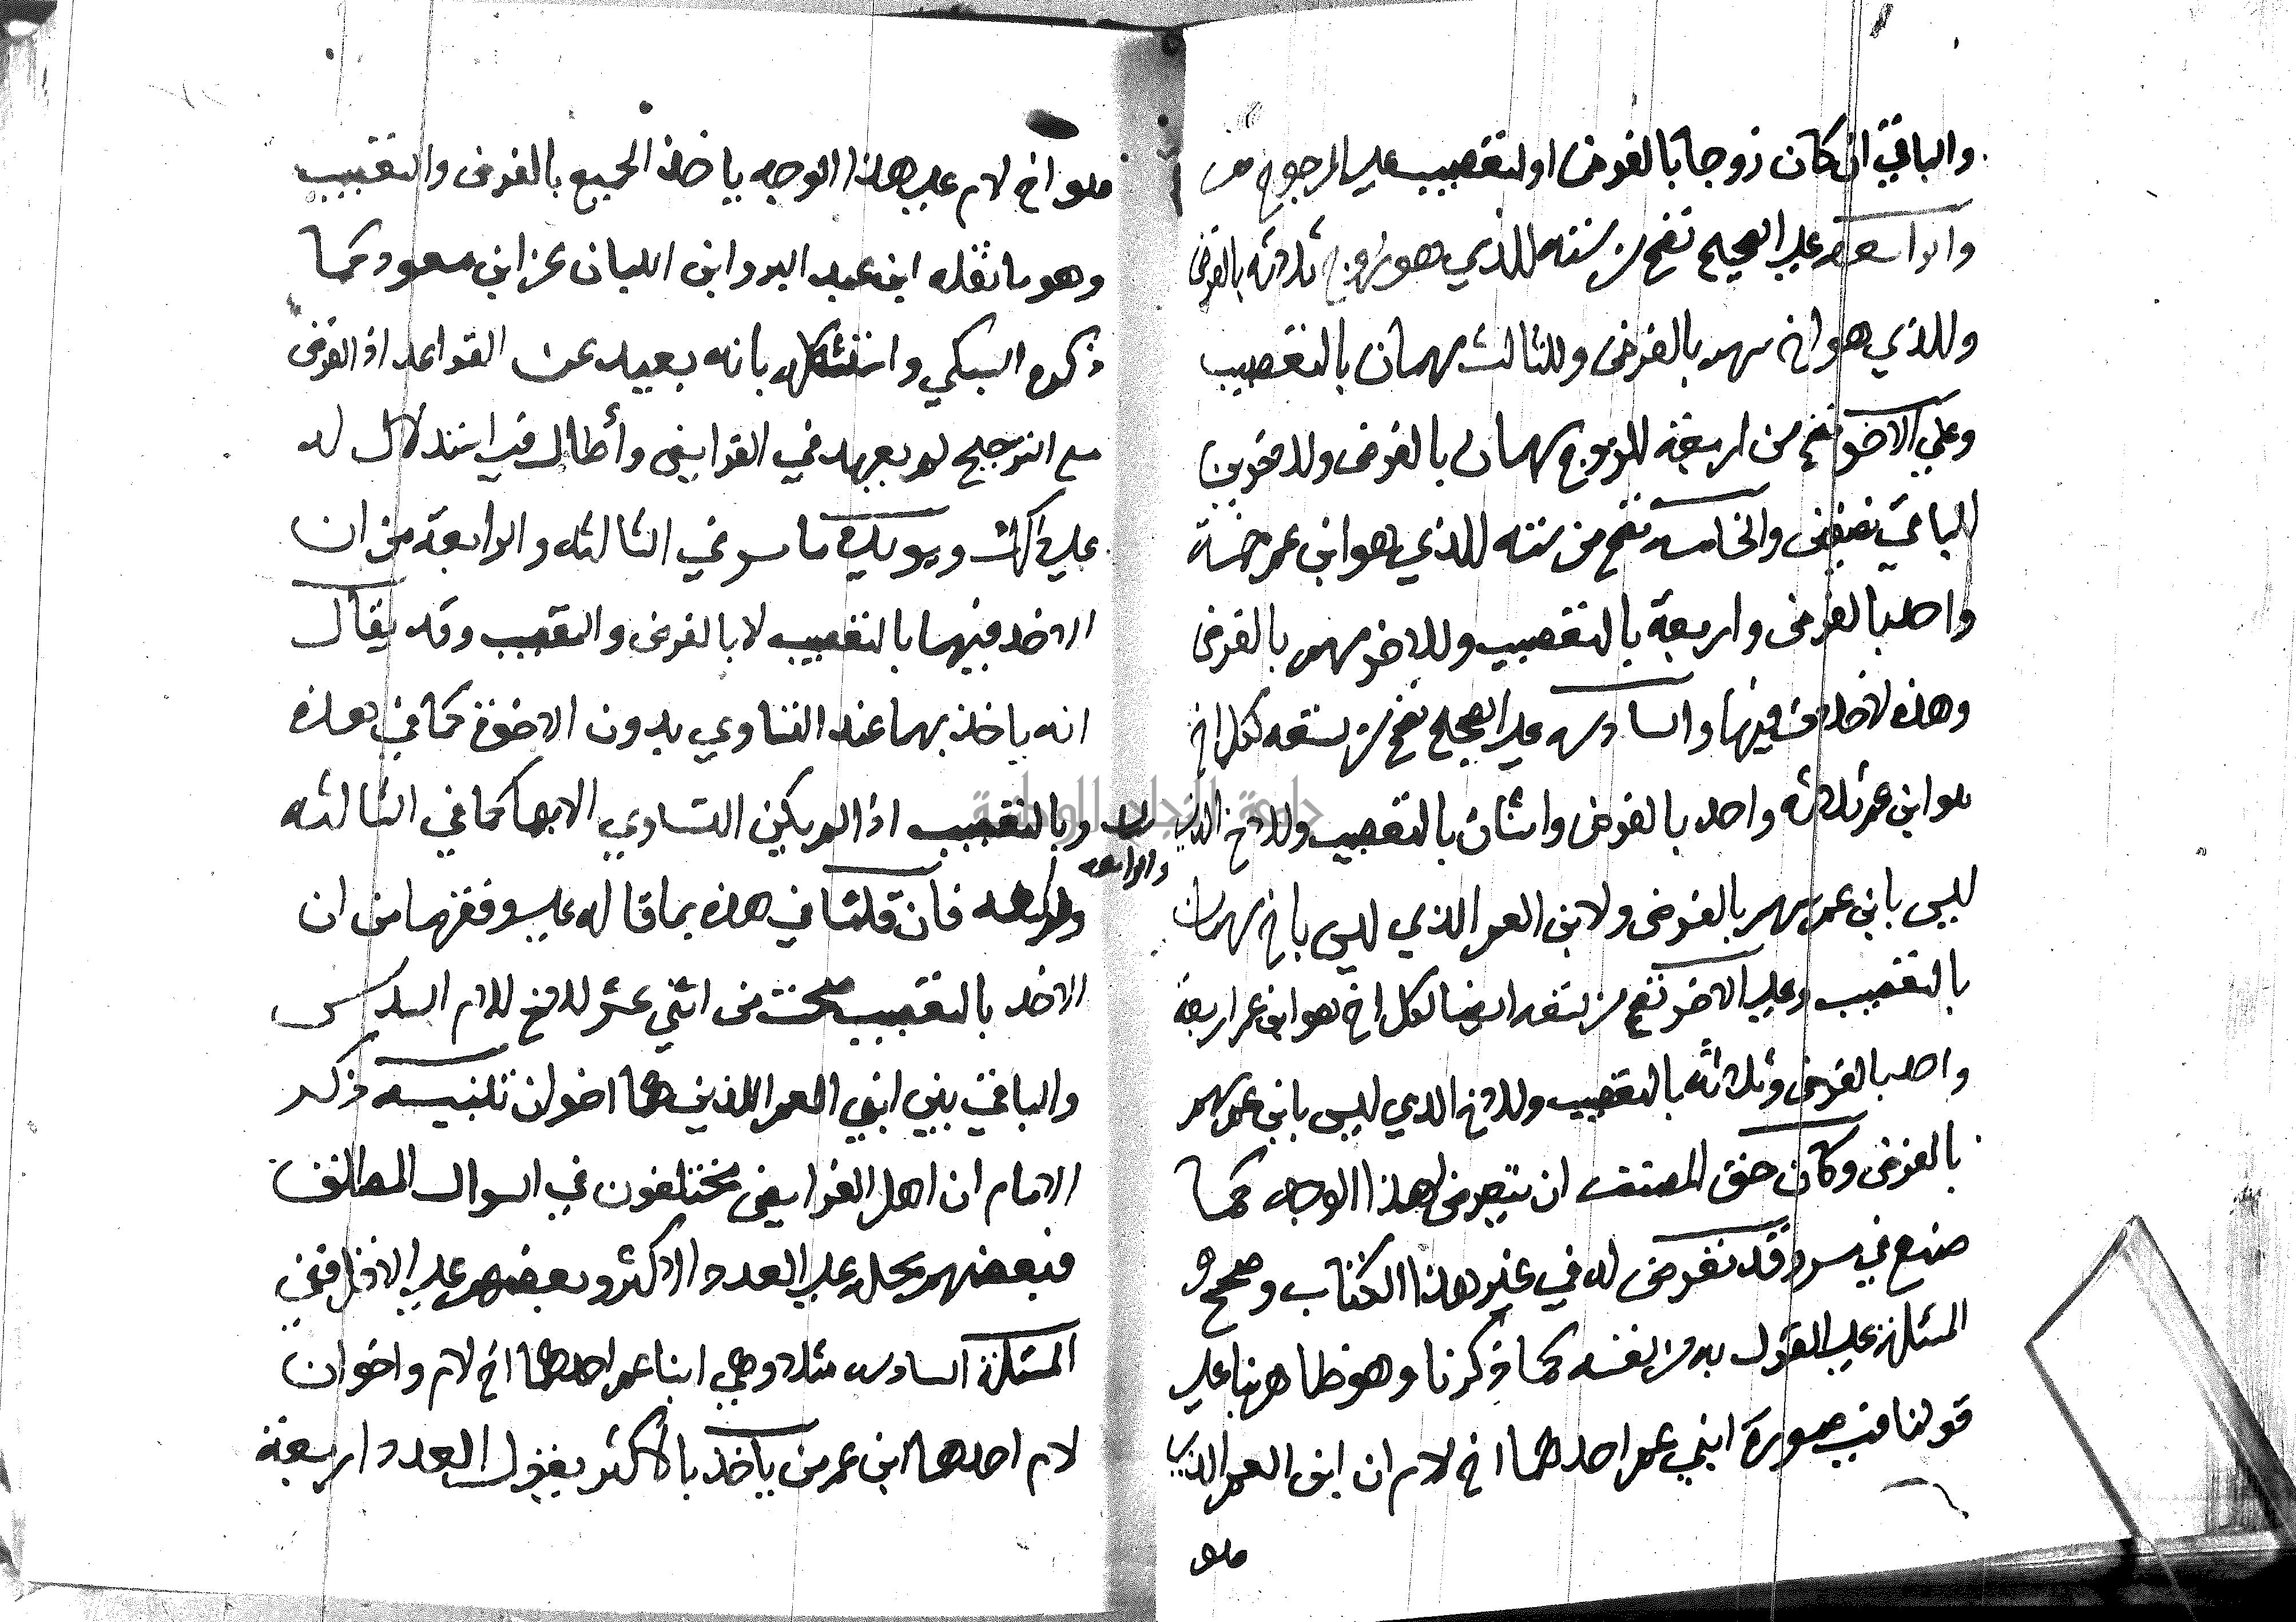 والباقي ان كان زوجا بالفرض او التعصيب على المرجوح من
والرابعه على الصحيح تصح من سته للذي هو زوج ثلاثه بالفرض
وللذي هو اخ سهم بالفرض وللثالث سهمان بالتعصيب
وعلى الاخر تصح من اربعة للزوج سهمان بالفرض وللاخوين
الباقي نصفين والخامسه تصح من سته للذي هو ابن عم خمسة
واحد بالفرض واربعة بالتعصيب وللاخر سهم بالفرض
وهذه لا خلاف فيها والسادسه على الصحيح تصح من تسعه لكل اخ
هو ابن عم ثلاثه واحد بالفرض واثنان بالتعصيب وللاخ الذي
ليس بابن عم سهم بالفرض ولابن العم الذي ليس باخ سهمان
بالتعصيب وعلى الاخر تصح من تسعه ايضا لكل اخ هو ابن عم اربعة
واحد بالفرض وثلاثة بالتعصيب وللاخ الذي ليس بابن عم سهم
بالفرض وكان حق المصنف ان يتعرض لهذا الوجه كما
صنع في وقد تعرض له في غير هذا الكتاب وصحح
المسئلة على القول به من نفسه كما ذكرنا وهو ظاهر بنا على
قولنا في صورة ابني عم احدهما اخ لام ان ابن العم الذي
هو
هو اخ لام على هذا الوجه ياخذ الجميع بالفرض والتعصيب
وهو ما نقله ابن عبد البر وابن اللبان عن ابن مسعود كما
ذكره السبكي واستشكله بانه بعيد عن القواعد اذ الفرض
مع الترجيح لم يعهد في الفرايض وأطال في استدلال له
على ذلك ويويده ما مر في الثالثه والرابعة من ان
الاخذ فيهما بالتعصيب لا بالفرض والتعصيب وقد يقال
انه ياخذ بهما عند التساوي بدون الاخوة كما في هذه
وبالتعصيب اذا لم يكن التساوي الا بها كما في الثالثه
والرابعه
فان قلنا في هذه بما قاله على وفقهما من ان
الاخذ بالتعصيب صحت من اثني عشر للاخ للام السدس
والباقي بين ابني العم اللذين هما اخوان تنبيه ذكر
الامام ان اهل الفرايض مختلفون في السوال المطلق
فبعضهم يحمله على العدد الاكثر وبعضهم على الاقل ففي
المسئلة السادسه مثلا وهي ابنا عم احدهما اخ لام واخوان
لام احدهما ابن عم من ياخذ بالأكثر يقول العدد اربعة